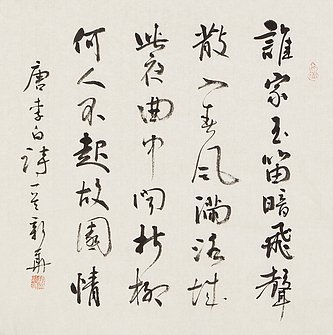 誰家玉笛暗飛聲
散入春風滿洛城
此夜曲中聞折柳
何人不起故園情
唐李白詩一首